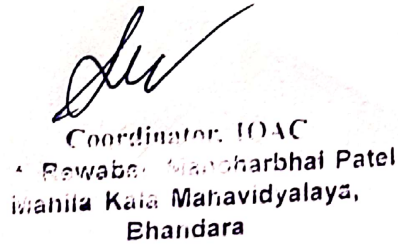 Coordinator, IQAC
Rewaben Manoharbhai Patel
Mahila Kala Mahavidyalaya,
Bhandara